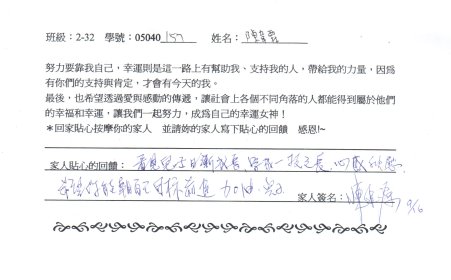 班級：2-32 學號：05040157 姓名：陳
努力要靠我自己，幸運則是這一路上有幫助我、支持我的人，帶給我的力量，因為
有你們的支持與肯定，才會有今天的我。
最後，也希望透過愛與感動的傳遞，讓社會上各個不同角落的人都能得到屬於他們
的幸福和幸運，讓我們一起努力，成為自己的幸運女神！
＊回家貼心按摩你的家人 並請妳的家人寫下貼心的回饋 感恩!~
家人貼心的回饋：看見兒子日漸成長，學我一技之長，心感欣慰，
希望你能朝自己目標前進 加油
家人簽名：陳 9/16